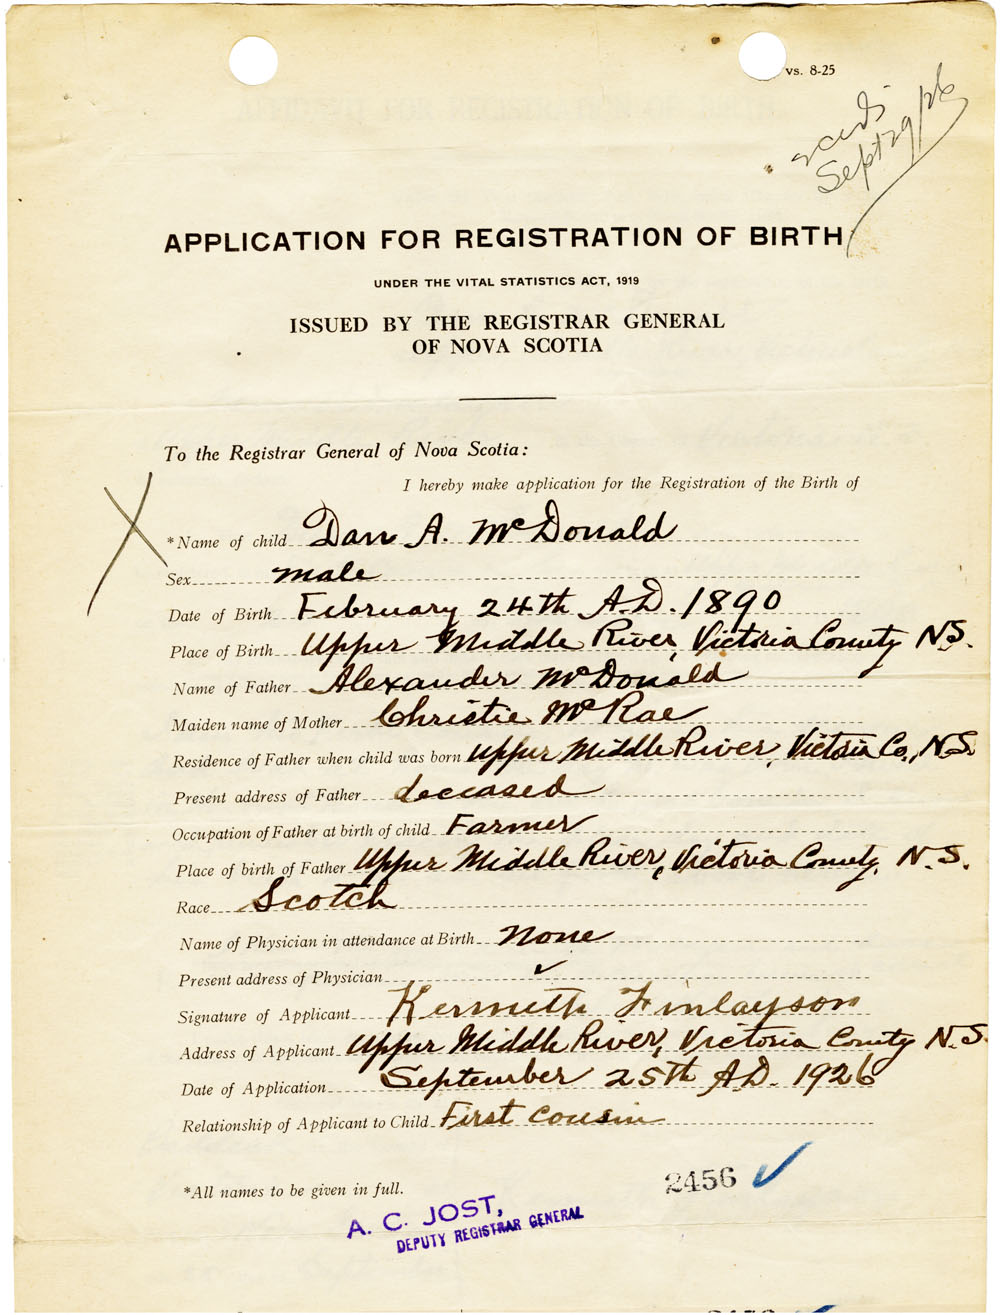 vs. 8-25
Sept 29/26
APPLICATION FOR REGISTRATION OF BIRTH
UNDER THE VITAL STATISTICS ACT, 1919
ISSUED BY THE REGISTRAR GENERAL
OF NOVA SCOTIA
To the Registrar General of Nova Scotia:
I hereby make application for the Registration of the Birth of
*Name of child Dan A. McDonald
Sex male
Date of Birth February 24th A.D. 1890
Place of Birth Upper Middle River, Victoria County N.S.
Name of Father Alexander McDonald
Maiden name of Mother Christie McRae
Residence of Father when child was born Upper Middle River, Victoria Co., N.S.
Present address of Father deceased
Occupation of Father at birth of child Farmer
Place of birth of Father Upper Middle River, Victoria County, N.S.
Race Scotch
Name of Physician in attendance at Birth None
Present address of Physician
Signature of Applicant Kenneth Finlayson
Address of Applicant Upper Middle River, Victoria County N.S.
Date of Application September 25th A.D. 1926
Relationship of Applicant to Child First cousin
*All names to be given in full.
2456
A. C. JOST,
DEPUTY REGISTRAR GENERAL